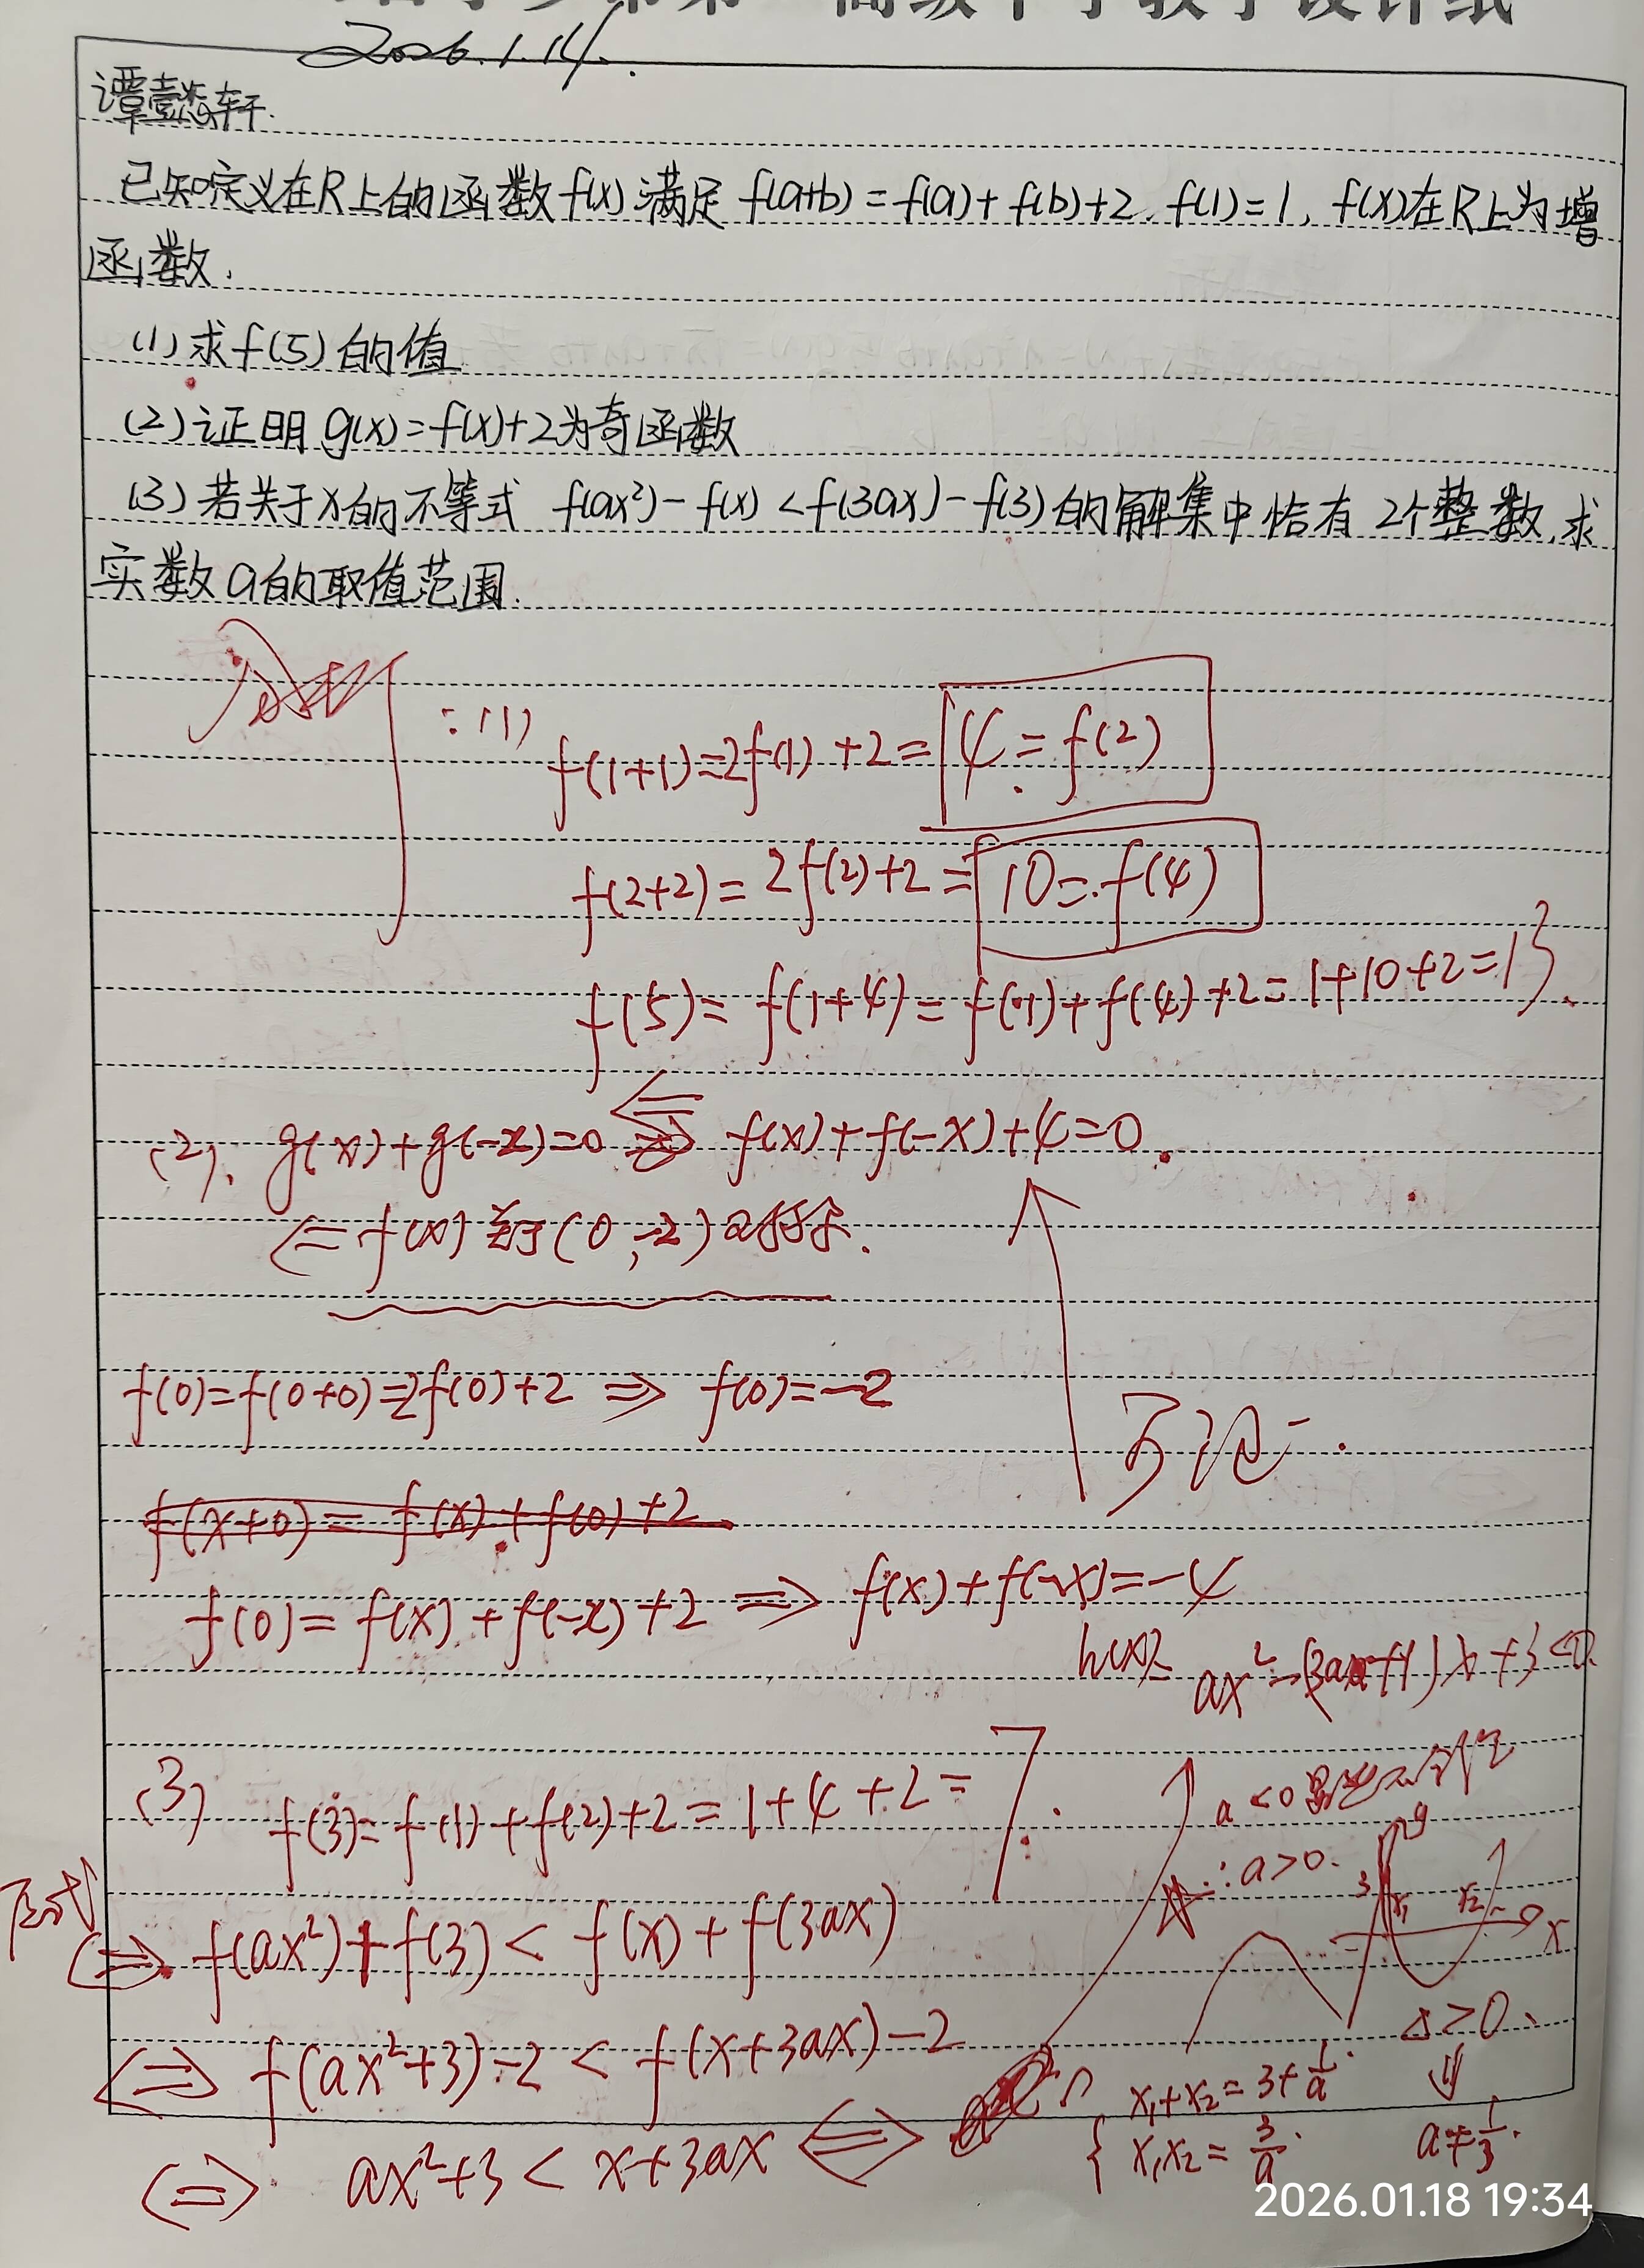 2026.1.14.
谭壹轩.
已知定义在R上的函数f(x)满足 f(a+b)=f(a)+f(b)+2, f(1)=1, f(x)在R上为增
函数.
(1)求f(5)的值
(2)证明g(x)=f(x)+2为奇函数
(3)若关于x的不等式 f(ax²)-f(x)<f(3ax)-f(3)的解集中恰有2个整数,求
实数a的取值范围.
:(1) f(1+1)=2f(1)+2=4=f(2)
f(2+2)=2f(2)+2=10=f(4)
f(5)=f(1+4)=f(1)+f(4)+2=1+10+2=13.
(2). g(x)+g(-x)=0 ⇐ f(x)+f(-x)+4=0.
⇐ f(x)关于(0,-2)对称.
f(0)=f(0+0)=2f(0)+2 ⇒ f(0)=-2
f(x+0)=f(x)+f(0)+2
f(0)=f(x)+f(-x)+2 ⇒ f(x)+f(-x)=-4
h(x)= ax²-(3a+1)x+3<0
(3) f(3)=f(1)+f(2)+2=1+4+2=7.
a<0
∴a>0.
y
3
x₁ x₂ x
⇔ f(ax²)+f(3)<f(x)+f(3ax)
⇔ f(ax²+3)-2<f(x+3ax)-2
Δ>0
⇓
a≠1/3.
{ x₁+x₂=3+1/a.
x₁x₂=3/a.
⇔ ax²+3<x+3ax ⇔
2026.01.18 19:34